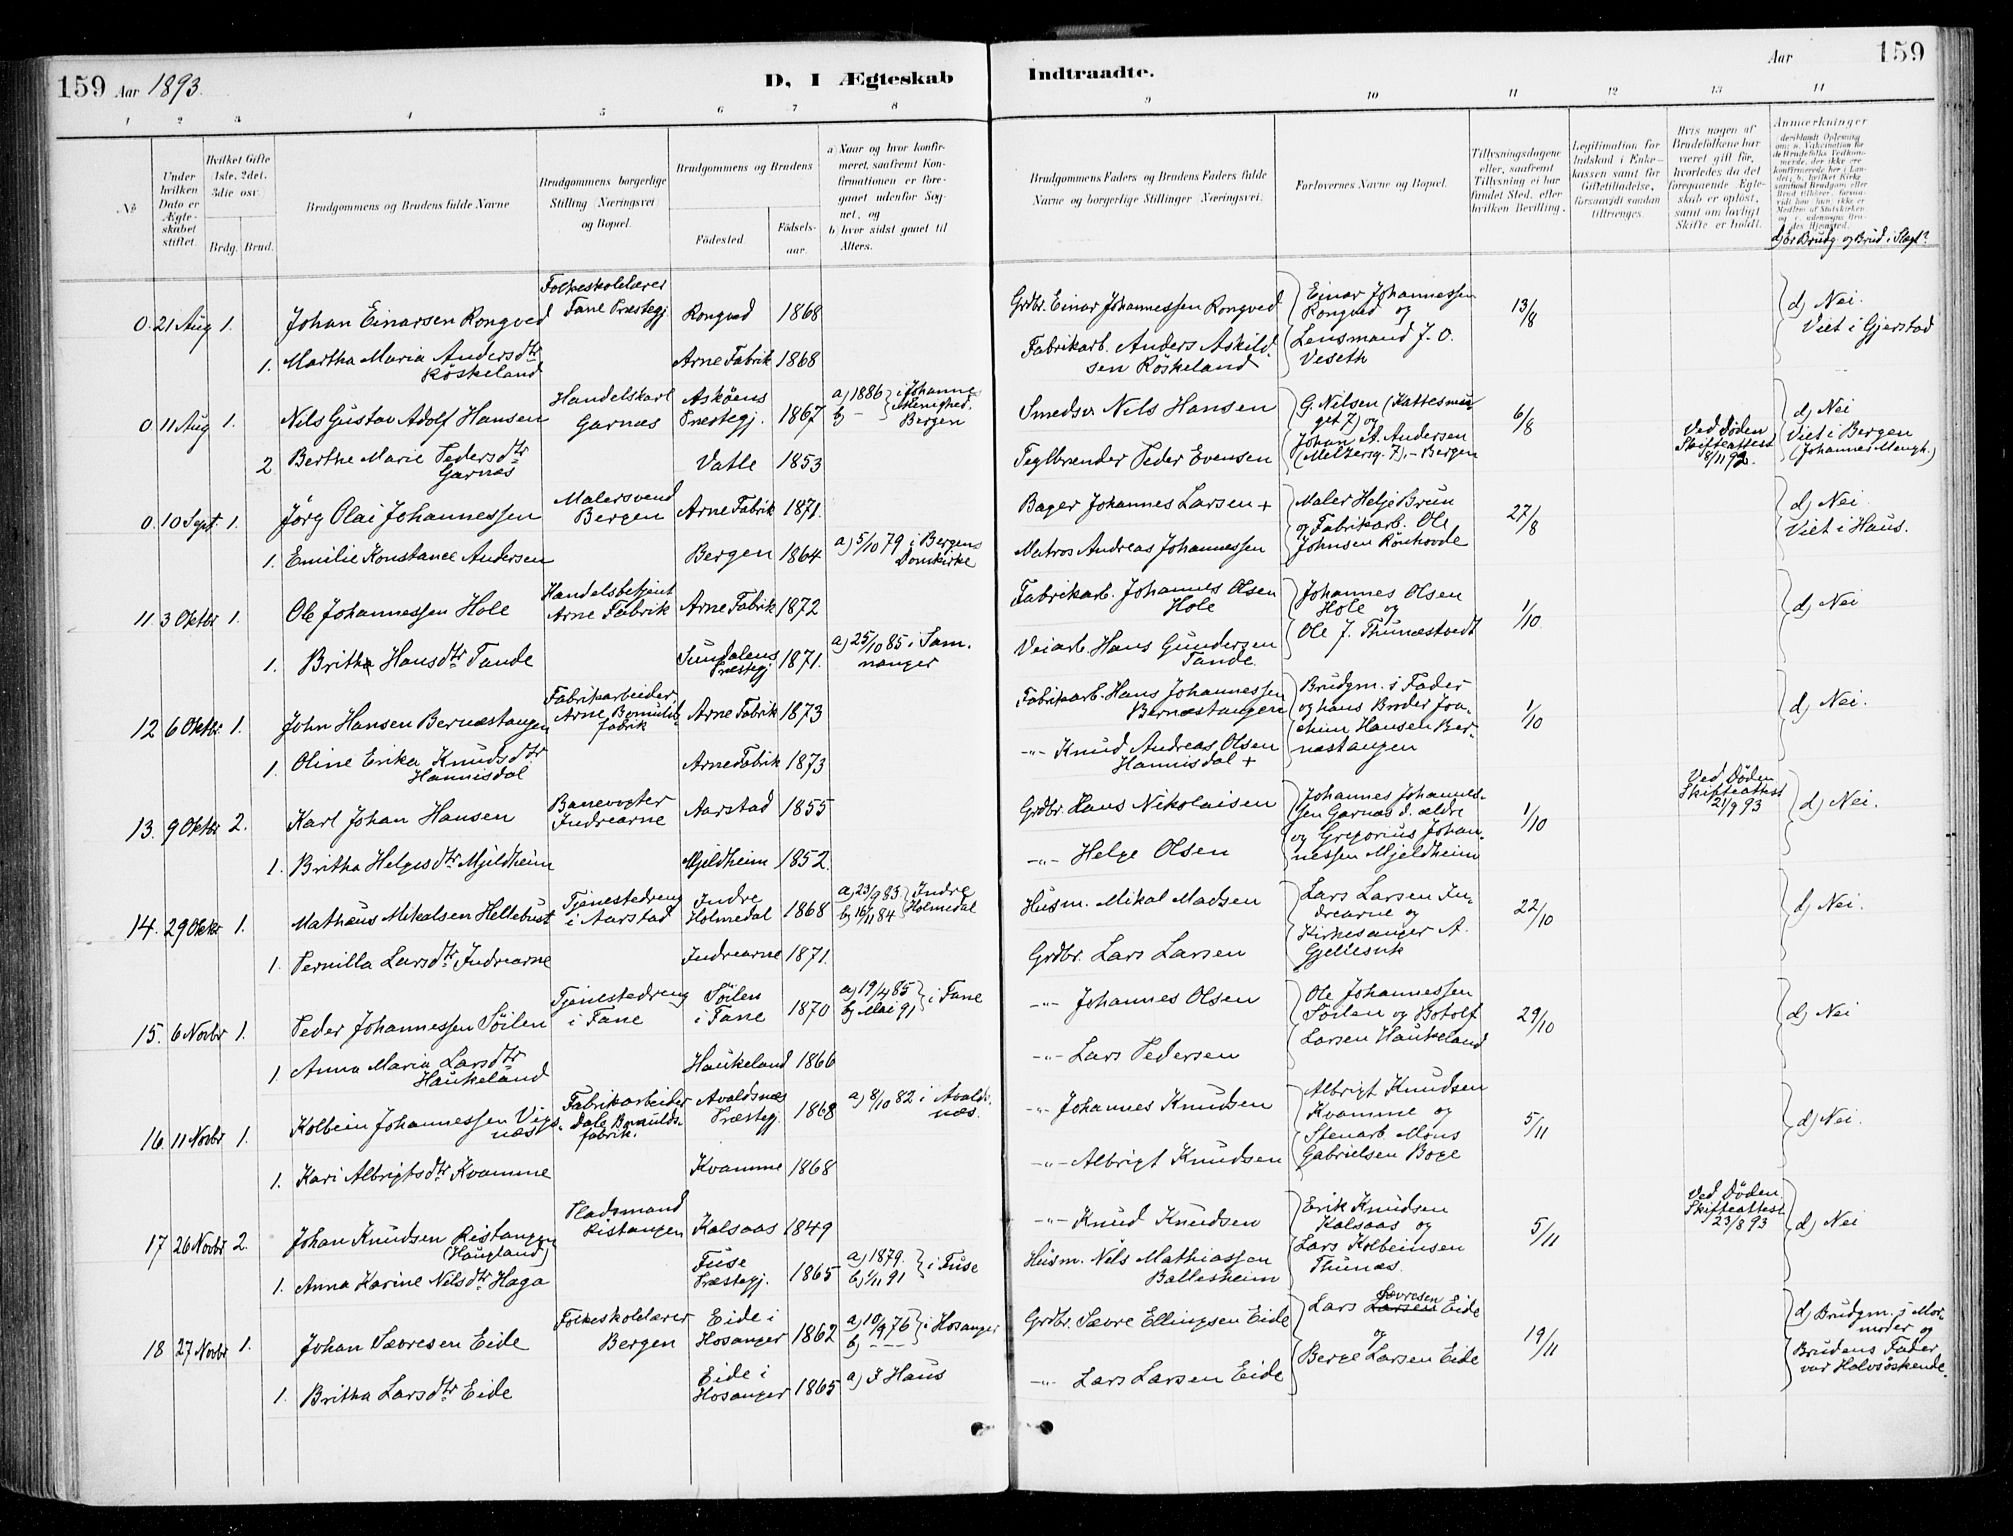 159 Aar 1893.
D, I Ægteskab
Indtraadte.
Aar 159
1 2 3 4 5 6 7 8
9 10 11 12 13 14
No
Under hvilken Dato er Ægteskabet stiftet.
Hvilket Gifte (1ste, 2det, 3die osv.
Brdg. Brud.
Brudgommens og Brudens fulde Navne
Brudgommens borgerlige Stilling (Næringsvei) og Bopæl.
Brudgommens og Brudens
Fødested.
Fødselsaar.
a) Naar og hvor konfirmeret, saafremt Konfirmationen er foregaaet udenfor Sognet, og
b) hvor sidst gaaet til Alters.
Brudgommens Faders og Brudens Faders fulde Navne og borgerlige Stillinger (Næringsvei.
Forlovernes Navne og Bopæl.
Tillysningsdagene eller, saafremt Tillysning ei har fundet Sted, efter hvilken Bevilling.
Legitimation for Indskud i Enkekassen samt for Giftetilladelse, forsaavidt saadan tiltrænges.
Hvis nogen af Brudefolkene har været gift før, hvorledes da det foregaaende Ægteskab er opløst, samt om lovligt Skifte er holdt.
Anmærkninger
d) Er Brudg og Brud i Slægt?
0. 21 Aug 1. Johan Einarsen Rongved Folkeskolelærer Fane Præstegj Rongved 1868 Grdbr. Einar Johannessen Rongved Einar Johannessen Rongved og 13/8 d) Nei.
1. Martha Maria Andersdtr Röskeland Arne Fabrik 1868 Fabrikarb. Anders Askildsen Röskeland Lensmand J. O. Veseth Viet i Gjerstad
0 11 Aug 1. Nils Gustav Adolf Hansen Handelskarl Garnæs Asköens Præstegj. 1867 a) 1886 b) - i Johannes Menighed. Bergen Smedsv. Nils Hansen G. Nilsen (Kattesmuget 7) og 6/8 Ved Døden Skifteattest 8/11 92. d) Nei
2 Berthe Marie Pedersdtr Garnæs Vatle 1853 Teglbrænder Peder Evensen Johan A. Andersen (Meltzersg. 7).- Bergen Viet i Bergen (Johannes Mengh.)
0. 10 Sept. 1. Jörg Olai Johannessen Malersvend Bergen Arne Fabrik 1871. Bager Johannes Larsen + Maler Helje Brun 27/8 d) Nei
1. Emilie Konstance Andersen Bergen 1864 a) 5/10 79 i Bergens Domkirke Matros Andreas Johannessen og Fabrikarb. Ole Johnsen Rönhovde Viet i Haus.
11 3 Oktbr 1. Ole Johannessen Hole Handelsbetjent Arne Fabrik Arne Fabrik 1872 Fabrikarb. Johannes Olsen Hole Johannes Olsen Hole og 1/10 d) Nei
1. Britha Hansdtr Tande Sundalens Præstegj 1871. a) 25/10 85 i Samnanger Veiarb. Hans Gundersen Tande. Ole J. Thunæstvedt
12 6 Oktbr 1. John Hansen Bernæstangen Fabrikarbeider Arne Bomulds fabrik Arne Fabrik 1873 Fabrikarb. Hans Johannessen Bernæstangen Brudgm.s Fader og hans Broder Joachim Hansen Bernæstangen 1/10 d) Nei.
1. Oline Erika Knudsdtr Hannisdal Arne Fabrik 1873 -"- Knud Andreas Olsen Hannisdal +
13. 9 Oktbr 2. Karl Johan Hansen Banevogter Indrearne Aarstad 1855 Grdbr. Hans Nikolaisen Johannes Johannessen Garnæs d. ældre 1/10 Ved Døden Skifteattest 21/9 93 d) Nei.
1. Britha Helgesdtr Mjeldheim Mjeldheim 1852. -"- Helge Olsen og Gregorius Johannessen Mjeldheim
14. 29 Oktbr 1. Mathæus Mikalsen Hellebust Tjenestedreng i Aarstad Indre Holmedal 1868 a) 23/9 83 b) 16/11 84 Indre Holmedal Husm. Mikal Madsen Lars Larsen Indrearne og 22/10 d) Nei.
1. Pernilla Larsdtr Indrearne Indrearne 1871. Grdbr. Lars Larsen Kirkesanger A. Gjellesvik
15. 6 Novbr 1. Peder Johannessen Söilen Tjenestedreng i Fane Söilen i Fane 1870 a) 19/4 85 b) Mai 91 i Fane -"- Johannes Olsen Ole Johannessen Söilen og Botolf 29/10 d) Nei
1 Anna Maria Larsdtr Haukeland Haukeland 1866 -"- Lars Pedersen Larsen Haukeland
16. 11 Novbr 1. Kolbein Johannessen Vigsnæs Fabrikarbeider Dale Bomuldsfabrik. Avaldsnæs Præstegj. 1868 a) 8/10 82 i Avaldsnæs. -"- Johannes Knudsen Albrigt Knudsen Kvamme og 5/11 d) Nei.
1. Kari Albrigtsdtr Kvamme Kvamme 1868 -"- Albrigt Knudsen Stenarb. Mons Gabrielsen Boge
17 26 Novbr 2. Johan Knudsen Ristangen (Haugland) Pladsmand Ristangen Kalsaas 1849 -"- Knud Knudsen Erik Knudsen Kalsaas og 5/11 Ved Døden. Skifteattest 23/8 93 d) Nei
1. Anna Karine Nilsdtr Haga Fuse Præstegj. 1865 a) 1879. b) 1/11 91 i Fuse Husm. Nils Mathiassen Ballesheim Lars Kolbeinsen Thunæs.
18 27 Novbr 1. Johan Sævresen Eide Folkeskolelærer Bergen Eide i Hosanger 1862 a) 10/9 76 b) - - - i Hosanger Grdbr. Sævre Ellingsen Eide Lars Sævresen Larsen Eide og 19/11 d) Brudgm.s Mormoder og
1. Britha Larsdtr Eide Eide i Hosanger 1865 a) I Haus -"- Lars Larsen Eide Berge Larsen Eide Brudens Fader var Halvsöskende.